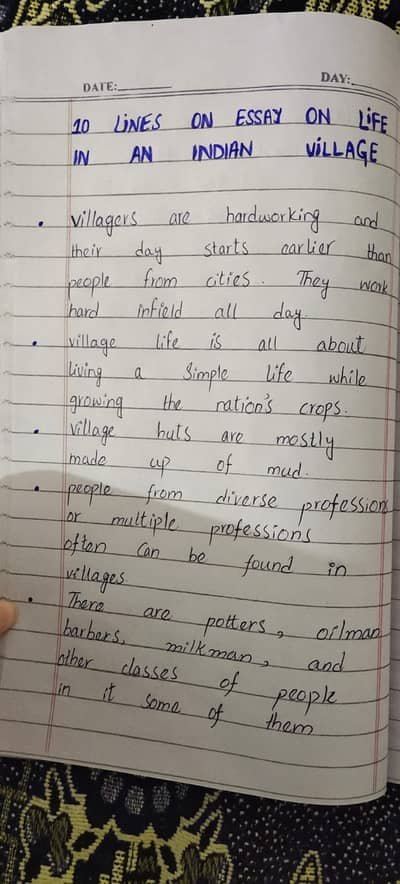 DATE:
DAY:
10 LINES ON ESSAY ON LIFE
IN AN INDIAN VILLAGE
• villagers are hardworking and
their day starts earlier than
people from cities. They work
hard infield all day.
• village life is all about
living a simple life while
growing the nation's crops.
• village huts are mostly
made up of mud.
• people from diverse profession
or multiple professions
often can be found in
villages
• There are potters, oilman
barbers, milkman, and
other classes of people
in it some of them